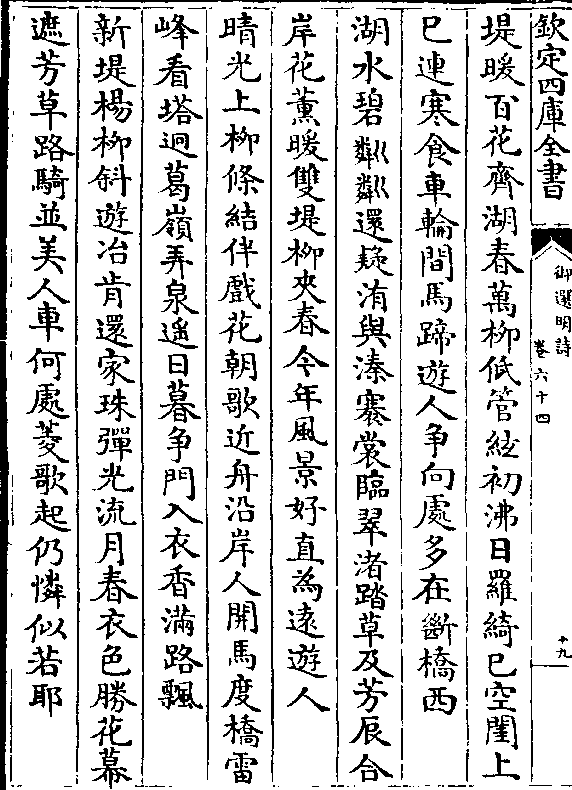 欽定四庫全書
御選明詩
卷六十四
十九
堤暖百花齊湖春萬柳低管絃初沸日羅綺已空閨上
已連寒食車輪間馬蹄遊人争向處多在斷橋西
湖水碧粼粼還疑洧與溱褰裳臨翠渚踏草及芳辰合
岸花薰暖雙堤柳夾春今年風景好直為遠遊人
晴光上柳條結伴戲花朝歌近舟沿岸人開馬度橋雷
峰看塔迥葛嶺弄泉遙日暮争門入衣香滿路飄
新堤楊柳斜遊冶肯還家珠彈光流月春衣色勝花幕
遮芳草路騎並美人車何處菱歌起仍憐似若耶